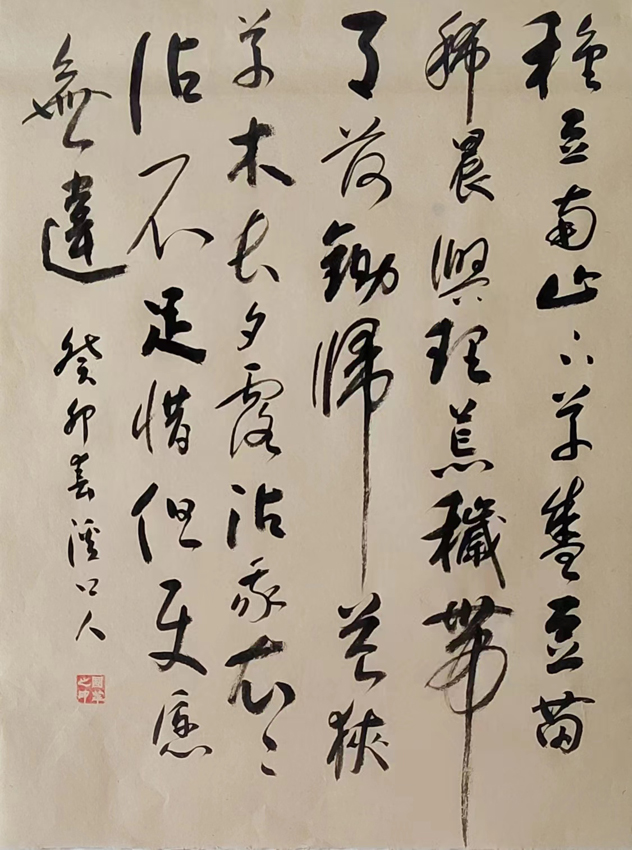 種豆南山下草盛豆苗
稀晨興理荒穢帶
月荷鋤歸道狹
草木長夕露沾我衣〻
沾不足惜但使愿
無違
癸卯春溪口人